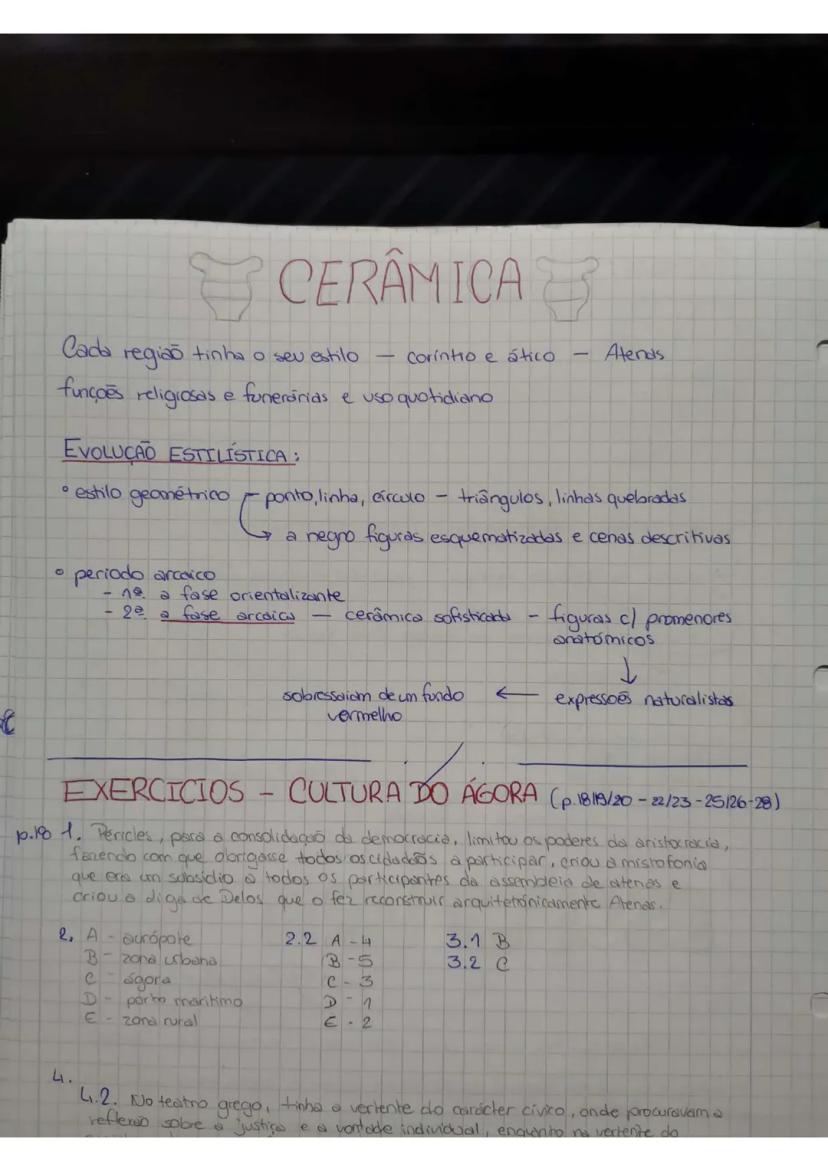 CERÂMICA
Cada região tinha o seu estilo — coríntio e ático — Atenas
funções religiosas e funerárias e uso quotidiano
EVOLUÇÃO ESTILÍSTICA:
° estilo geométrico ponto, linha, círculo - triângulos, linhas quebradas
→ a negro figuras esquematizadas e cenas descritivas
° periodo arcaico
- 1ª a fase orientalizante
- 2ª a fase arcaica — cerâmica sofisticada - figuras c/ promenores
anatómicos
↓
sobressaiam de um fundo ← expressões naturalistas
vermelho
EXERCICIOS - CULTURA DO ÁGORA (p.18/19/20 - 22/23 - 25/26 - 28)
p.18 1. Péricles, para a consolidação da democracia, limitou os poderes da aristocracia,
fazendo com que obrigasse todos os cidadãos a participar, criou a mistofonia
que era um subsídio a todos os participantes da assembleia de atenas e
criou a diga de Delos que o fez reconstruir arquitetónicamente Atenas.
2. A - acrópole 2.2 A - 4 3.1 B
B - zona urbana B - 5 3.2 C
C - ágora C - 3
D - porto marítimo D - 1
E - zona rural E - 2
4.
4.2. No teatro grego, tinha a vertente do carácter cívico, onde procuravam a
reflexão sobre a justiça e a vontade individual, enquanto na vertente do